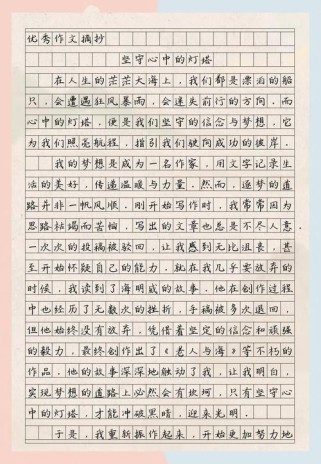 优秀作文摘抄
坚守心中的灯塔
在人生的茫茫大海上，我们都是漂泊的船
只，会遭遇狂风暴雨，会迷失前行的方向。而
心中的灯塔，便是我们坚守的信念与梦想，它
为我们照亮航程，指引我们驶向成功的彼岸。
我的梦想是成为一名作家，用文字记录生
活的美好，传递温暖与力量。然而，逐梦的道
路并非一帆风顺。刚开始写作时，我常常因为
思路枯竭而苦恼，写出的文章也总是不尽人意。
一次次的投稿被驳回，让我感到无比沮丧，甚
至开始怀疑自己的能力。就在我几乎要放弃的
时候，我读到了海明威的故事。他在创作过程
中也经历了无数次的挫折，手稿被多次退回，
但他始终没有放弃，凭借着坚定的信念和顽强
的毅力，最终创作出了《老人与海》等不朽的
作品。他的故事深深地触动了我，让我明白，
实现梦想的道路上必然会有坎坷，只有坚守心
中的灯塔，才能冲破黑暗，迎来光明。
于是，我重新振作起来，开始更加努力地